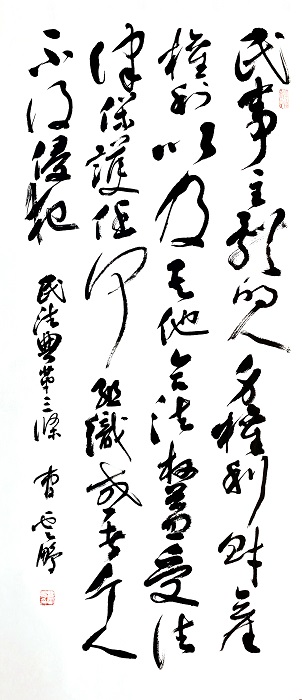 民事主體的人身權利財產
權利以及其他合法权益受法
律保護任何組織或者个人
不得侵犯 民法典第三條 曹云鵬